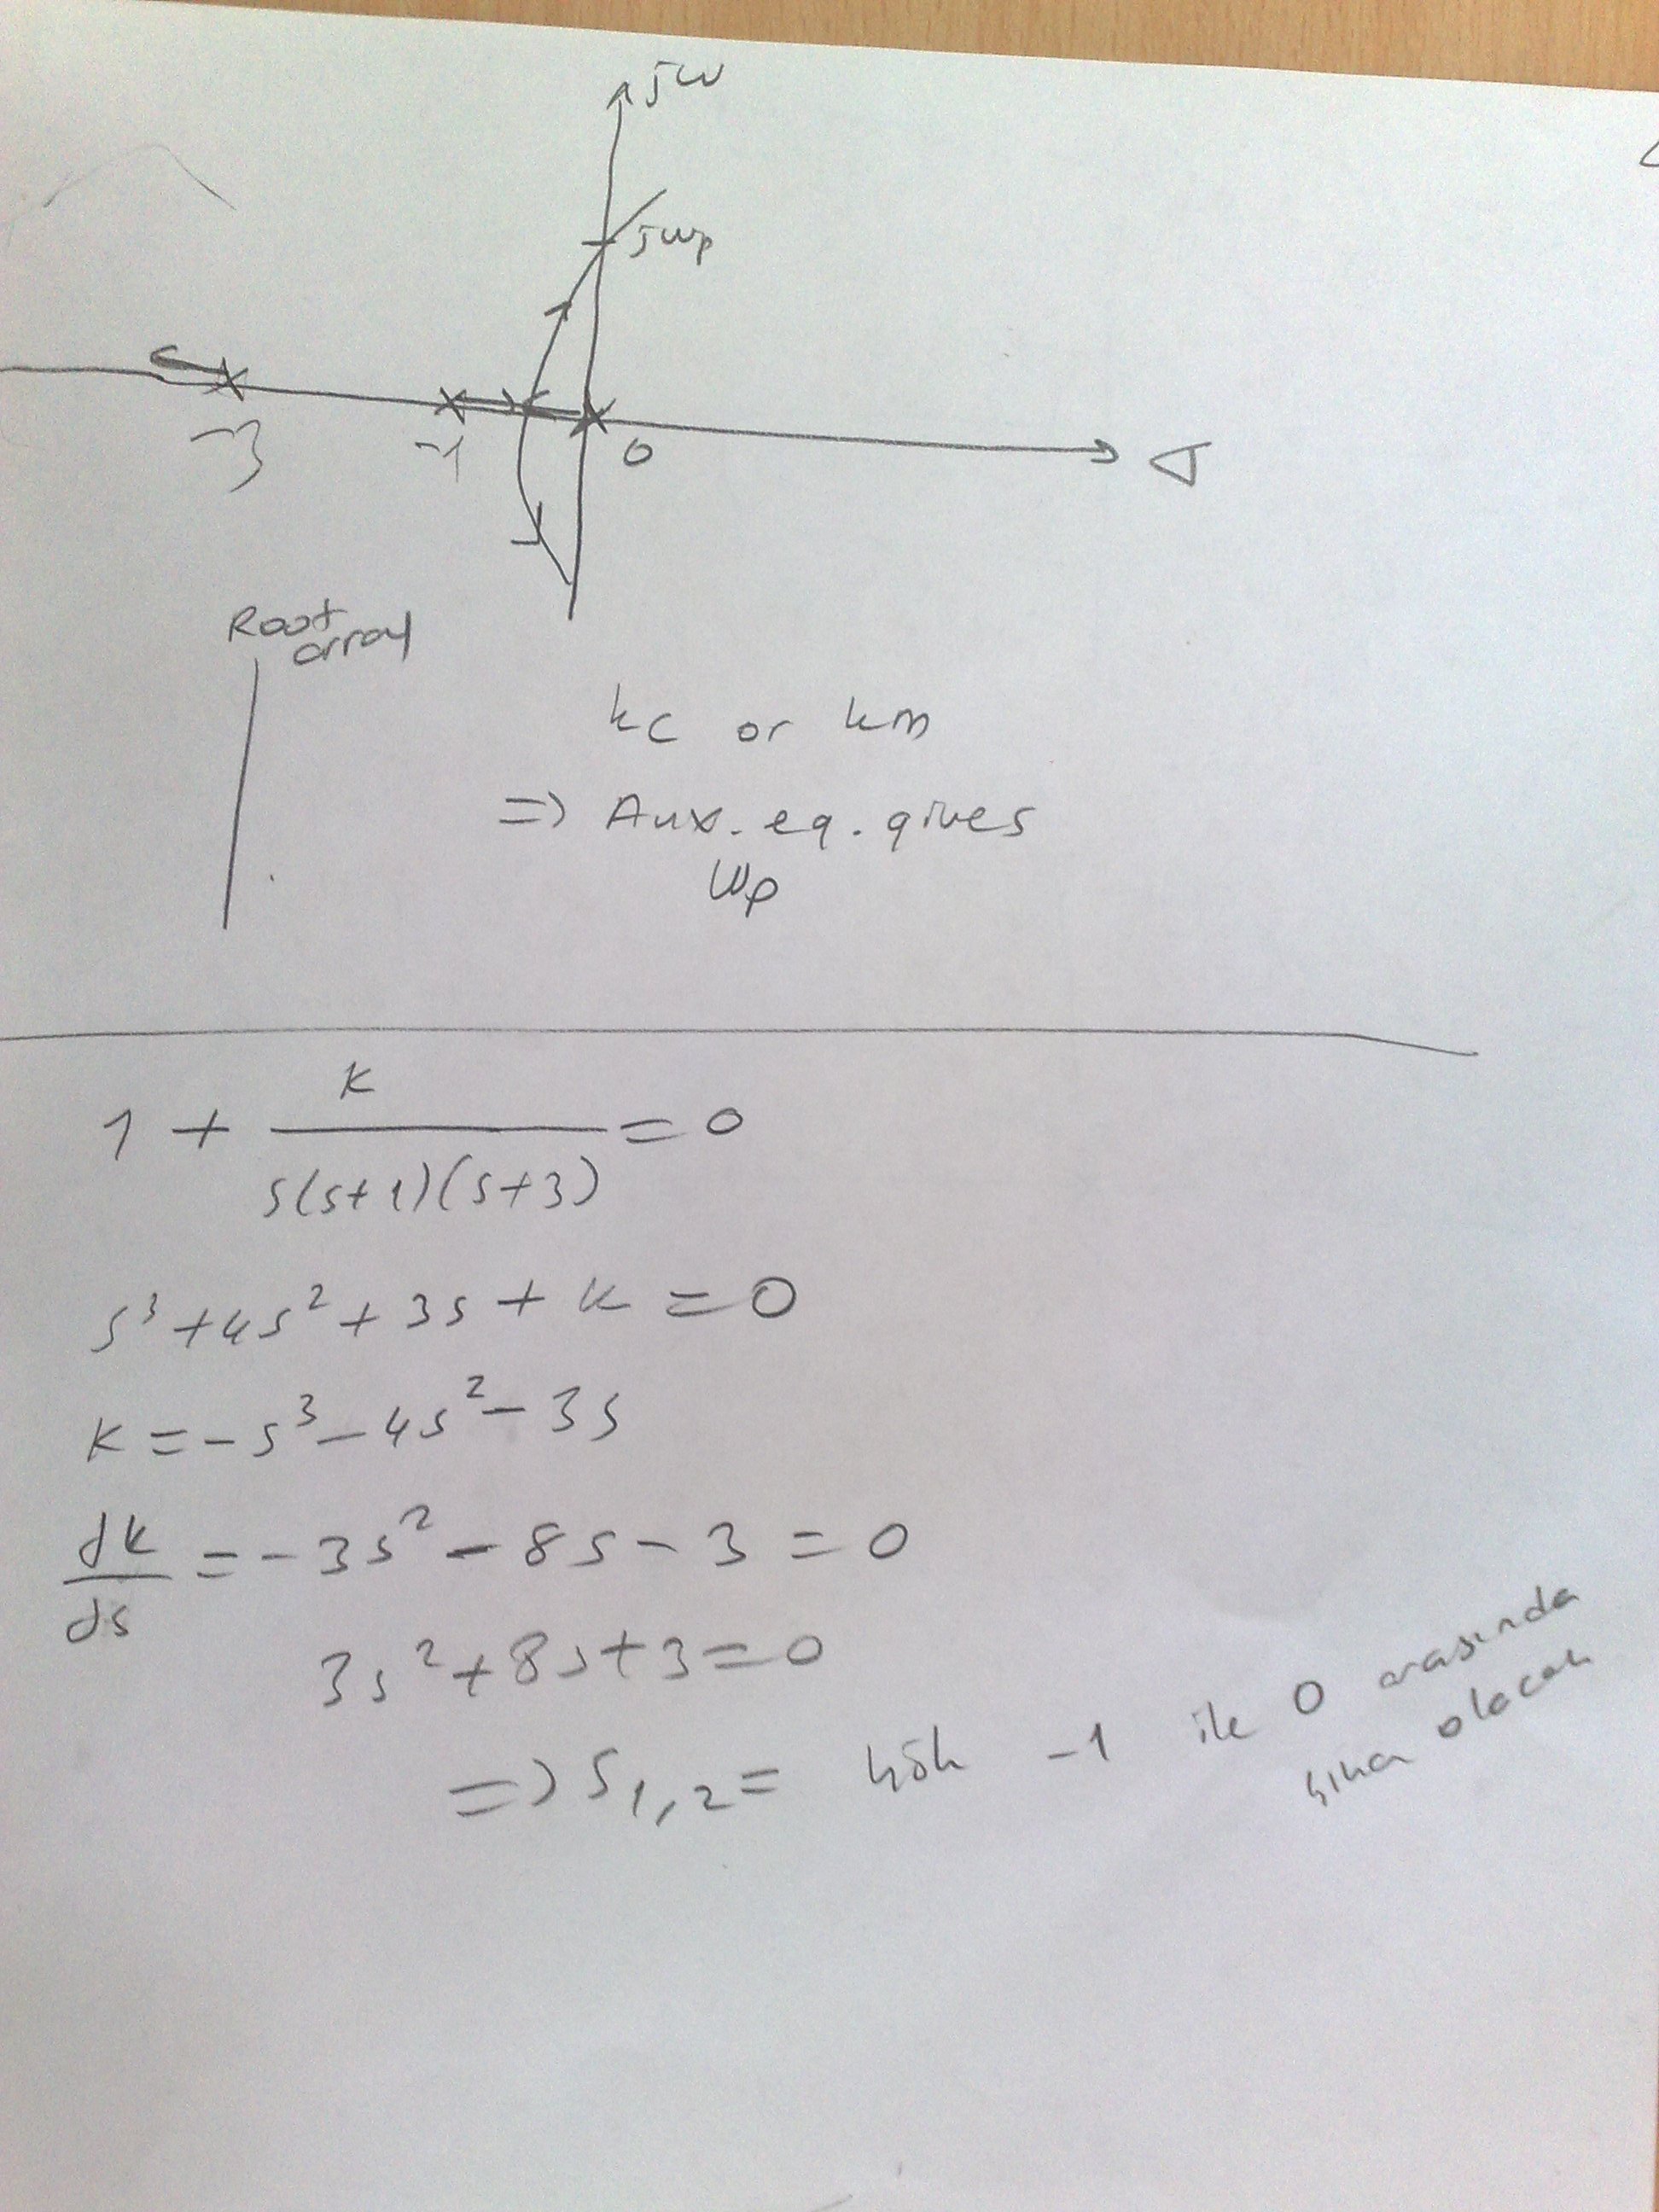 jw
jwp
-3 -1 0 σ
Root
array
kc or km
=> Aux. eq. gives
wp
1 + k / s(s+1)(s+3) = 0
s³ + 4s² + 3s + k = 0
k = -s³ - 4s² - 3s
dk/ds = -3s² - 8s - 3 = 0
3s² + 8s + 3 = 0
=> s1,2 = kök -1 ile 0 arasında
olacak